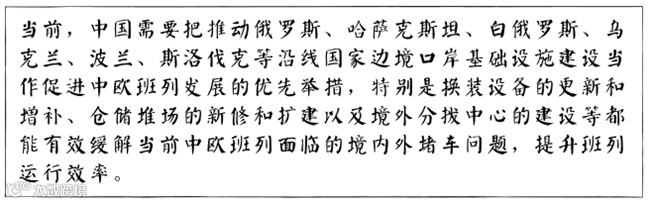 当前，中国需要把推动俄罗斯、哈萨克斯坦、白俄罗斯、乌
克兰、波兰、斯洛伐克等沿线国家边境口岸基础设施建设当
作促进中欧班列发展的优先举措，特别是换装设备的更新和
增补、仓储堆场的新修和扩建以及境外分拨中心的建设等都
能有效缓解当前中欧班列面临的境内外堵车问题，提升班列
运行效率。
大数跨境